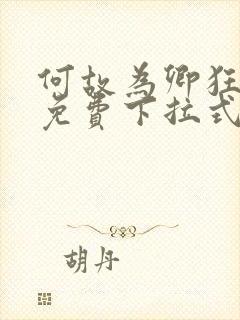 何故為卿狂
免費下拉式
胡丹